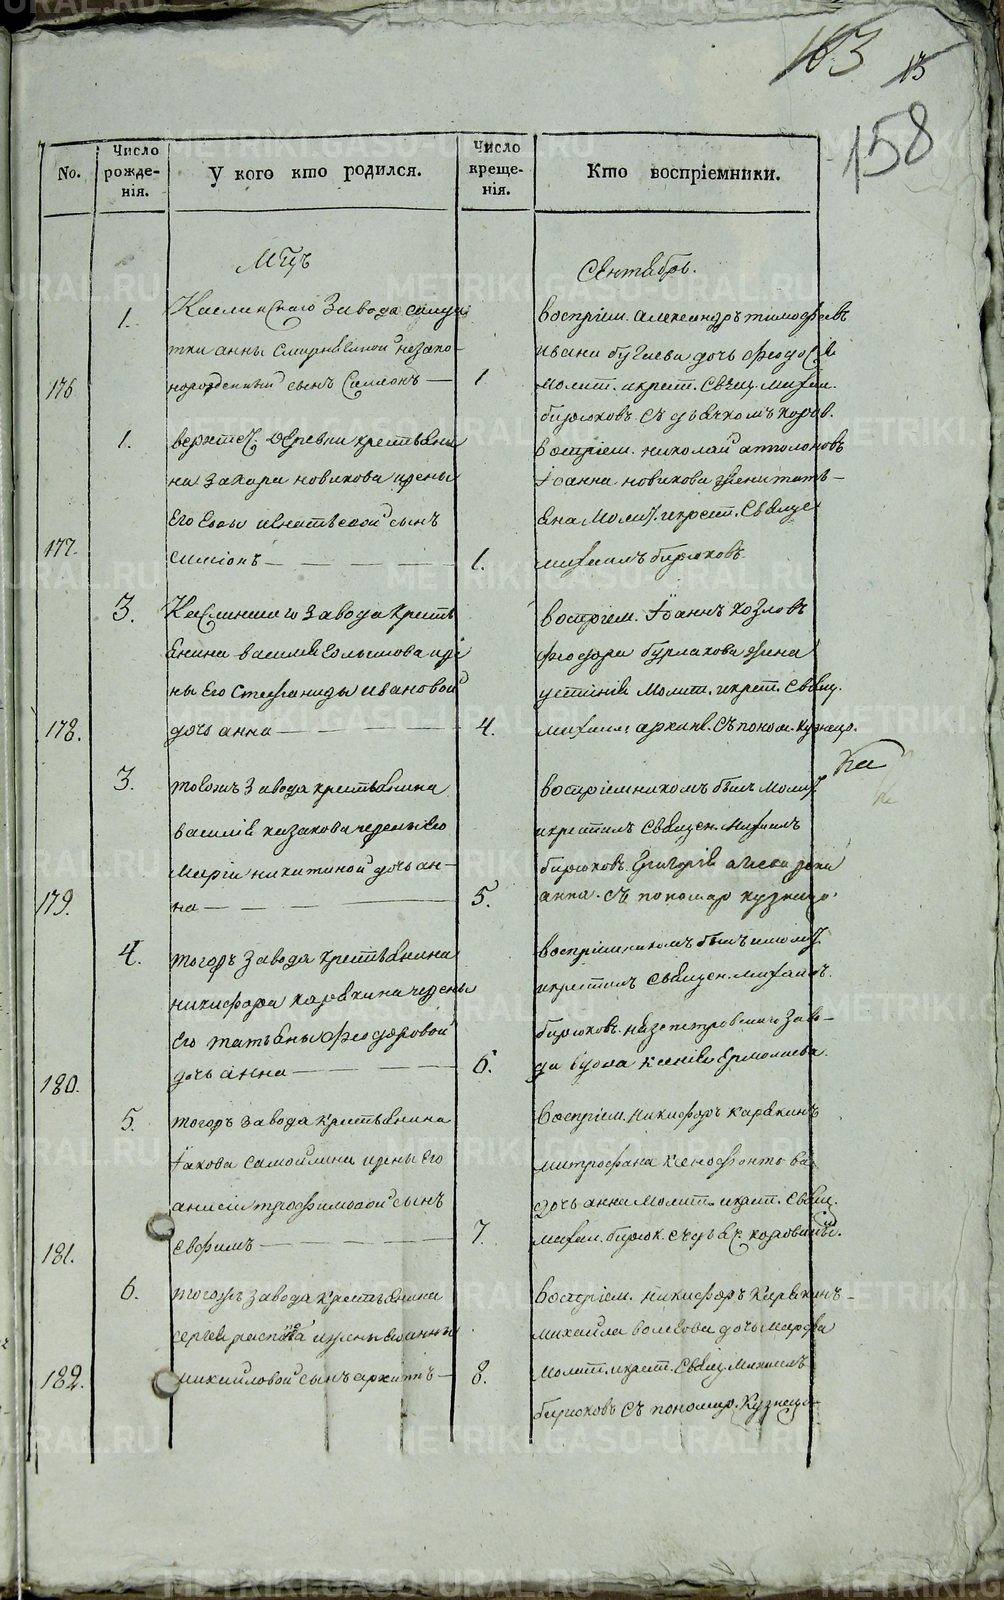 163 13
158
No.
Число рожде-нія.
У кого кто родился.
Число креще-нія.
Кто воспріемники.
Мцъ
Сентябрь.
176
1.
Каслинскаго Завода
тки анны незако-
норожденный сынъ Симеонъ
1
Воспріем. александръ тимофѣевъ
ивана дочь феодосія
молит. икрест. Свящ. михаи.
бирюковъ Съ дьячкомъ коров.
177.
1.
деревни крестьяни
на Захара новикова ижены
Его Евы игнатьевой сынъ
симіонъ
1.
Воспріем. николай
Іоанна новикова жена тать-
яна Молит. икрест. Священ
михаилъ бирюковъ
178.
3.
Каслинскаго Завода Кресть
янина василія ижe
ны Его Стефаниды ивановой
дочь анна
4.
Воспріем. Іоаннъ козловъ
феодора бурлакова жена
устинія Молит. икрест. Свящ.
михаил архип. Съ поном. кузнецо.
179.
3.
тогожъ Завода крестьянина
василія казакова ижены Его
маріи никитиной дочь ан-
на
5.
воспріемникомъ былъ молит
икрестилъ Священ. михаилъ
бирюковъ. григорія жена
анна. съ пономар кузнецо.
180.
4.
тогожъ Завода Крестьянина
никифора карякина ижены
Его татьяны феодоровой
дочь анна
6.
воспріемникомъ былъ имолит.
икрестилъ Священ. михаилъ.
бирюковъ. нязепетровскаго Заво-
да вдова ксенія Ермолаева.
181.
5.
тогожъ Завода Крестьянина
Іакова самойлина ижены Его
анисіи трофимовой сынъ
Евфимъ
7.
Воспріем. никифоръ карякинъ
митрофана Ксенофонтова
дочь анна Молит. икрест. Свящ.
михаи. бирюк. съ дьяч. коровинымъ.
182.
6.
тогожъ Завода Крестьянина
сергея ижены Его анны
михайловой сынъ архиппъ
8.
Воспріем. никифоръ Карякинъ
михайла волкова дочь марфа
молит. икрест. Свящ. михаилъ
бирюковъ Съ пономар. Кузнецо
METRIKI.GASO-URAL.RU